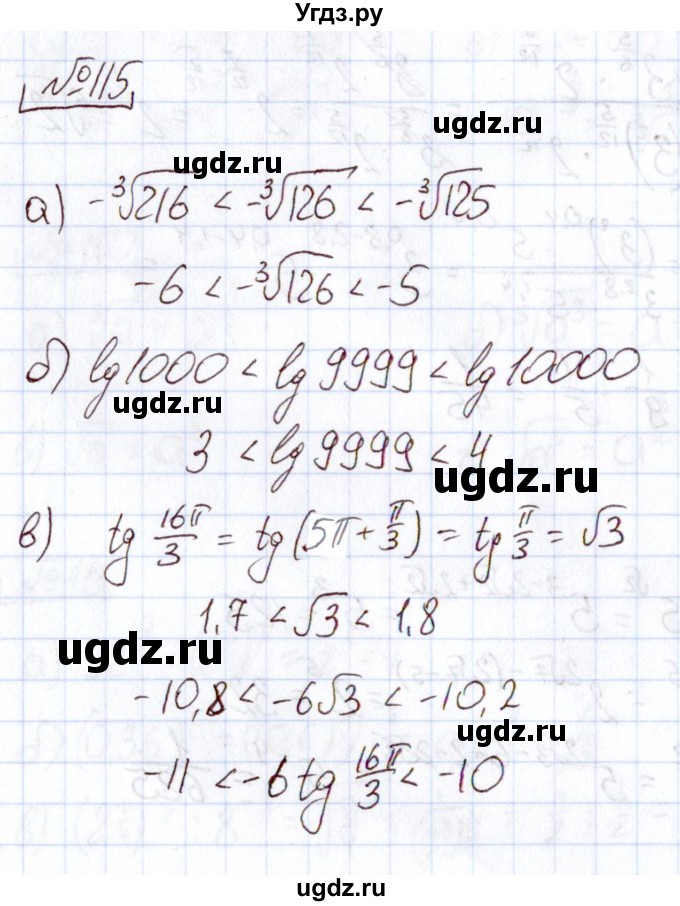 Угдз.ру
№115
ugdz.ru
ugdz.ru
а) -∛216 < -∛126 < -∛125
-6 < -∛126 < -5
б) lg1000 < lg 9999 < lg 10000
ugdz.ru
3 < lg 9999 < 4
ugdz.ru
в) tg 16π/3 = tg(5π + π/3) = tg π/3 = √3
1,7 < √3 < 1,8
ugdz.ru
-10,8 < -6√3 < -10,2
ugdz.ru
-11 < -6 tg 16π/3 < -10
ugdz.ru